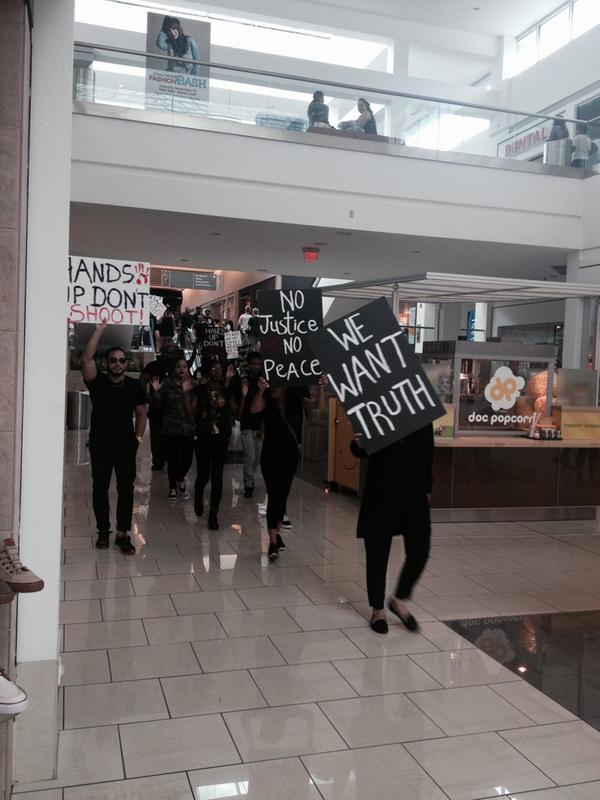 FASHION BASH
DENTAL
HANDS
UP DONT
SHOOT!
HANDS
UP DONT
NO
Justice
NO
PEACE
WE
WANT
TRUTH
dp
doc popcorn